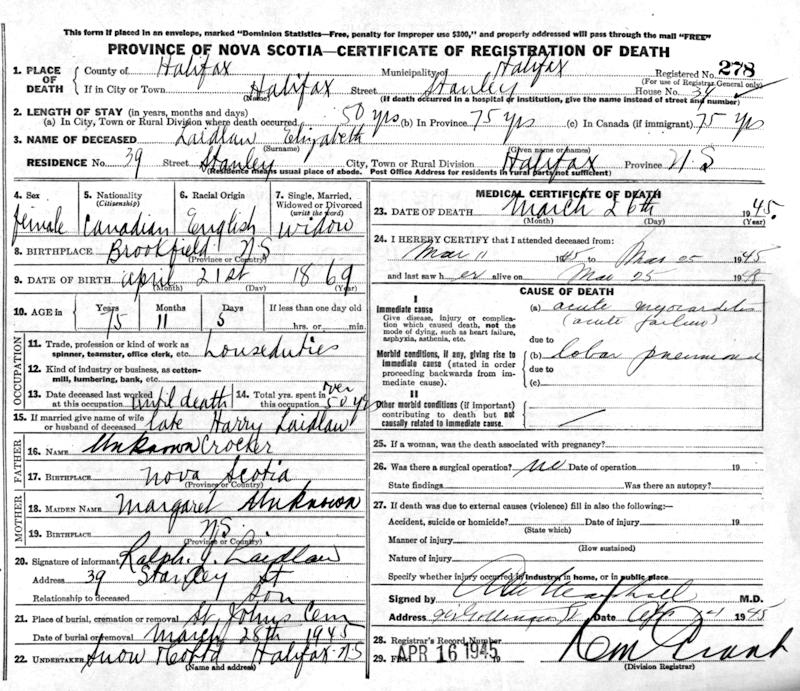 This form if placed in an envelope, marked "Dominion Statistics—Free, penalty for improper use $300," and properly addressed will pass through the mail "FREE"
PROVINCE OF NOVA SCOTIA—CERTIFICATE OF REGISTRATION OF DEATH
1. PLACE OF DEATH County of Halifax Municipality of Halifax Registered No. 278
(For use of Registrar General only)
If in City or Town Halifax Street Stanley House No. 39
(Name) (If death occurred in a hospital or institution, give the name instead of street and number)
2. LENGTH OF STAY (in years, months and days)
(a) In City, Town or Rural Division where death occurred 50 yrs (b) In Province 75 yrs (c) In Canada (if immigrant) 75 yrs
3. NAME OF DECEASED Laidlaw Elizabeth
(Surname) (Given name or names)
RESIDENCE No. 39 Street Stanley City, Town or Rural Division Halifax Province N S
(Residence means usual place of abode. Post Office Address for residents in rural parts not sufficient)
4. Sex female
5. Nationality (Citizenship) Canadian
6. Racial Origin English
7. Single, Married, Widowed or Divorced (write the word) widow
8. BIRTHPLACE Brookfield N S
(Province or Country)
9. DATE OF BIRTH april 21st 1869
(Month) (Day) (Year)
10. AGE in Years 75 Months 11 Days 5 If less than one day old hrs. or min.
OCCUPATION
11. Trade, profession or kind of work as spinner, teamster, office clerk, etc. houseduties
12. Kind of industry or business, as cotton-mill, lumbering, bank, etc.
13. Date deceased last worked at this occupation until death
14. Total yrs. spent in this occupation over 50 yrs
15. If married give name of wife or husband of deceased late Harry Laidlaw
FATHER
16. NAME Unknown Crocker
17. BIRTHPLACE Nova Scotia
(Province or Country)
MOTHER
18. MAIDEN NAME Margaret Unknown
19. BIRTHPLACE N S.
(Province or Country)
20. Signature of informant Ralph J. Laidlaw
Address 39 Stanley St
Relationship to deceased Son
21. Place of burial, cremation or removal St. Johns Cem
Date of burial or removal March 28th 1945
22. UNDERTAKER Snow & Co Ltd Halifax N S
(Name and address)
MEDICAL CERTIFICATE OF DEATH
23. DATE OF DEATH March 26th 1945.
(Month) (Day) (Year)
24. I HEREBY CERTIFY that I attended deceased from:
Mar 11 1945 to Mar 25 1945
and last saw her alive on Mar 25 1945
CAUSE OF DEATH
I
Immediate cause
Give disease, injury or complication which caused death, not the mode of dying, such as heart failure, asphyxia, asthenia, etc.
(a) acute myocarditis
(acute failure)
due to
Morbid conditions, if any, giving rise to immediate cause (stated in order proceeding backwards from immediate cause).
(b) lobar pneumonia
due to
(c)
II
Other morbid conditions (if important) contributing to death but not causally related to immediate cause.
25. If a woman, was the death associated with pregnancy?
26. Was there a surgical operation? no Date of operation 19
State findings Was there an autopsy?
27. If death was due to external causes (violence) fill in also the following:—
Accident, suicide or homicide? Date of injury 19
(State which)
Manner of injury
(How sustained)
Nature of injury
Specify whether injury occurred in industry, in home, or in public place
Signed by M.D.
Address Gottingen St Date 1945
28. Registrar's Record Number
29. APR 16 1945
(Division Registrar)